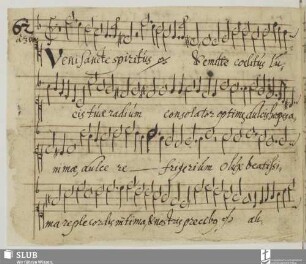 62
Veni sancte spiritus & emitte coelitus lu,
cis tuae radium consolator optime dulcis hospes a,
nimae dulce re frigerium O lux beatissi,
ma reple cordis intima & nostris
SLUB
Wir führen Wissen.